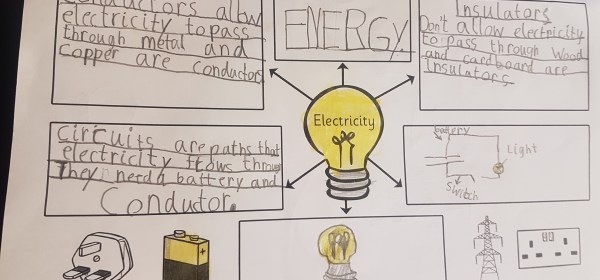 Conductors allow
electricity to pass
through metal and
Copper are conductors
ENERGY
Insulators
Don't allow electricity
to pass through Wood
and cardboard are
Insulators
Electricity
Circuits are paths that
electricity flows through
They need a battery and
Conductor.
battery
Light
Switch